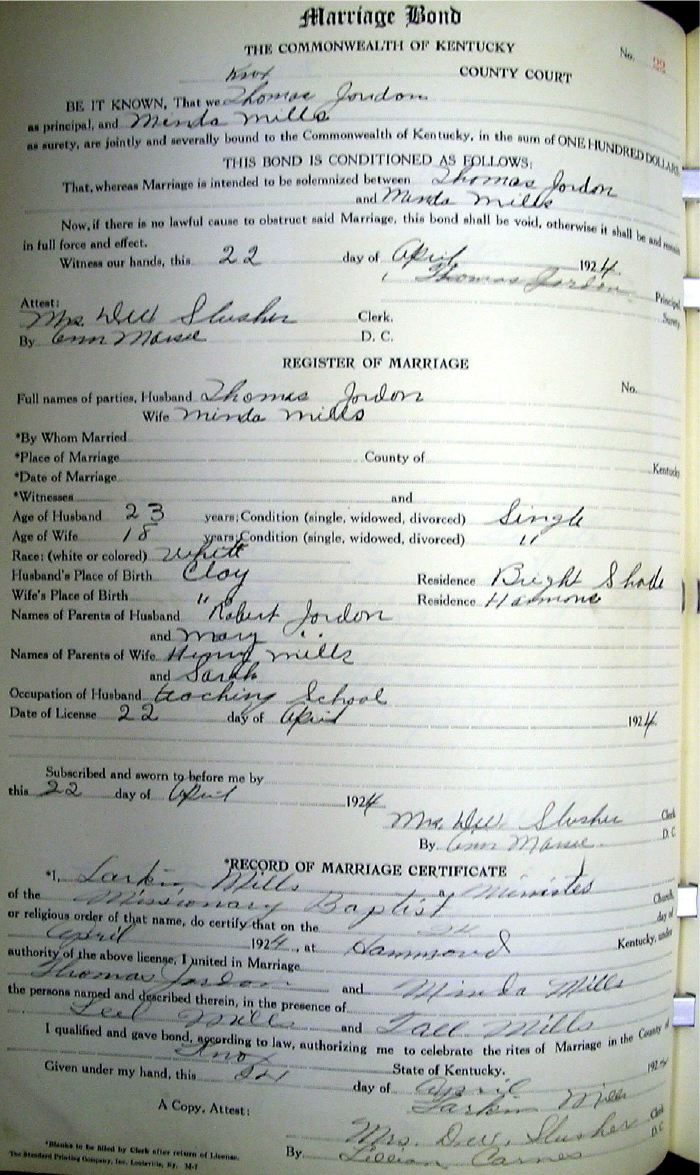 Marriage Bond
THE COMMONWEALTH OF KENTUCKY
No. 22
Knox COUNTY COURT
BE IT KNOWN, That we Thomas Jordon
as principal, and Minda Mills
as surety, are jointly and severally bound to the Commonwealth of Kentucky, in the sum of ONE HUNDRED DOLLARS.
THIS BOND IS CONDITIONED AS FOLLOWS:
That, whereas Marriage is intended to be solemnized between Thomas Jordon
and Minda Mills
Now, if there is no lawful cause to obstruct said Marriage, this bond shall be void, otherwise it shall be and remain
in full force and effect.
Witness our hands, this 22 day of April 1924.
Thomas Jordon Principal
Surety.
Attest:
Mrs. Dell Slusher Clerk.
By Ann D. C.
REGISTER OF MARRIAGE
No.
Full names of parties, Husband Thomas Jordon
Wife Minda Mills
*By Whom Married
*Place of Marriage County of Kentucky
*Date of Marriage
*Witnesses and
Age of Husband 23 years; Condition (single, widowed, divorced) Single
Age of Wife 18 years; Condition (single, widowed, divorced) "
Race: (white or colored) White
Husband's Place of Birth Clay Residence Bright Shade
Wife's Place of Birth " Residence Hammond
Names of Parents of Husband Robert Jordon
and Mary "
Names of Parents of Wife Henry Mills
and Sarah
Occupation of Husband teaching School
Date of License 22 day of April 1924.
Subscribed and sworn to before me by
this 22 day of April 1924
Mrs. Dell Slusher Clerk
By Ann D. C.
*RECORD OF MARRIAGE CERTIFICATE
*I, Larkin Mills a Minister
of the Missionary Baptist Church,
or religious order of that name, do certify that on the 24 day of
April 1924, at Hammond Kentucky, under
authority of the above license, I united in Marriage
Thomas Jordon and Minda Mills
the persons named and described therein, in the presence of
Mills and Mills
I qualified and gave bond, according to law, authorizing me to celebrate the rites of Marriage in the County of
Knox State of Kentucky.
Given under my hand, this 24 day of April 1924
Larkin Mills
A Copy, Attest:
Mrs. Dell Slusher Clerk
By Lillian Carnes D.C
*Blanks to be filled by Clerk after return of License.
The Standard Printing Company, Inc. Louisville, Ky. M-1